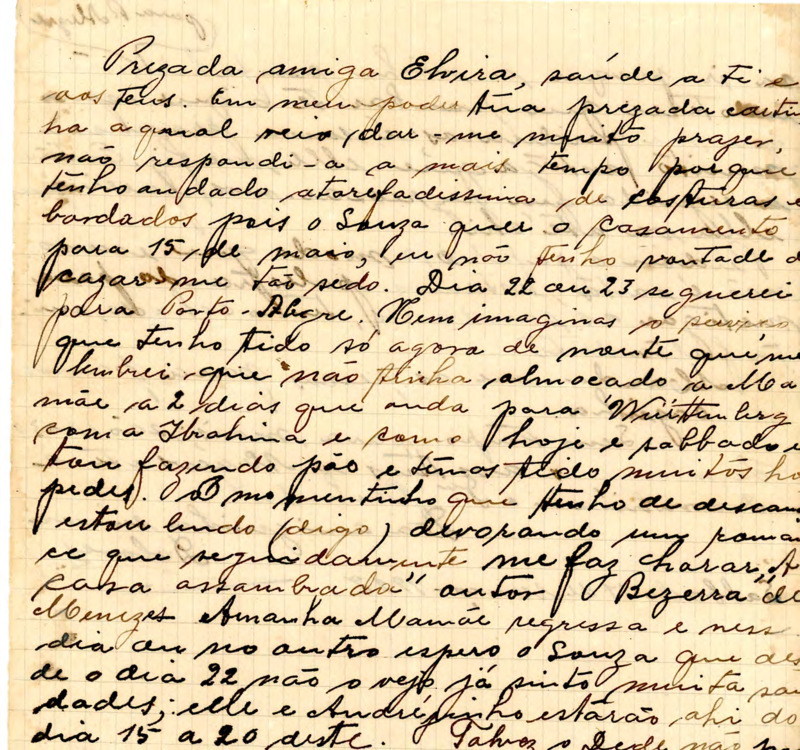 Prezada amiga Elvira, saúde a Ti e
aos Teus. Em meu poder túa prezada carti
ha a qual veio dar-me muito prazer,
não respondi-a a mais tempo porque
tenho andado atarefadissima de costuras e
bordados pois o Souza quer o casamento
para 15, de maio, eu não tenho vontade d
cazar me tão sedo. Dia 22 ou 23 seguerei
para Porto-Alegre. Nem imaginas o
que tenho tido só agora de noute que me
lembrei que não tinha almocado a Ma
mãe a 2 dias que anda para Württemberg
com a Ibrahina e como hoje e sabbado e
tou fazendo pão e temos tido muitos ho
pedes. O momentinho que tenho de descan
estou lendo (digo) devorando um roman
ce que seguidamente me faz chorar. A
casa assambrada" autor Bezerra "de
Menezes Amanhã Mamãe regressa e ness
dia ou no outro espero o Souza que des
de o dia 22 não o vejo já sinto muita sau
dades; elle e Andrézinho estarão ahi do
dia 15 a 20 deste. Talvez o Dede não